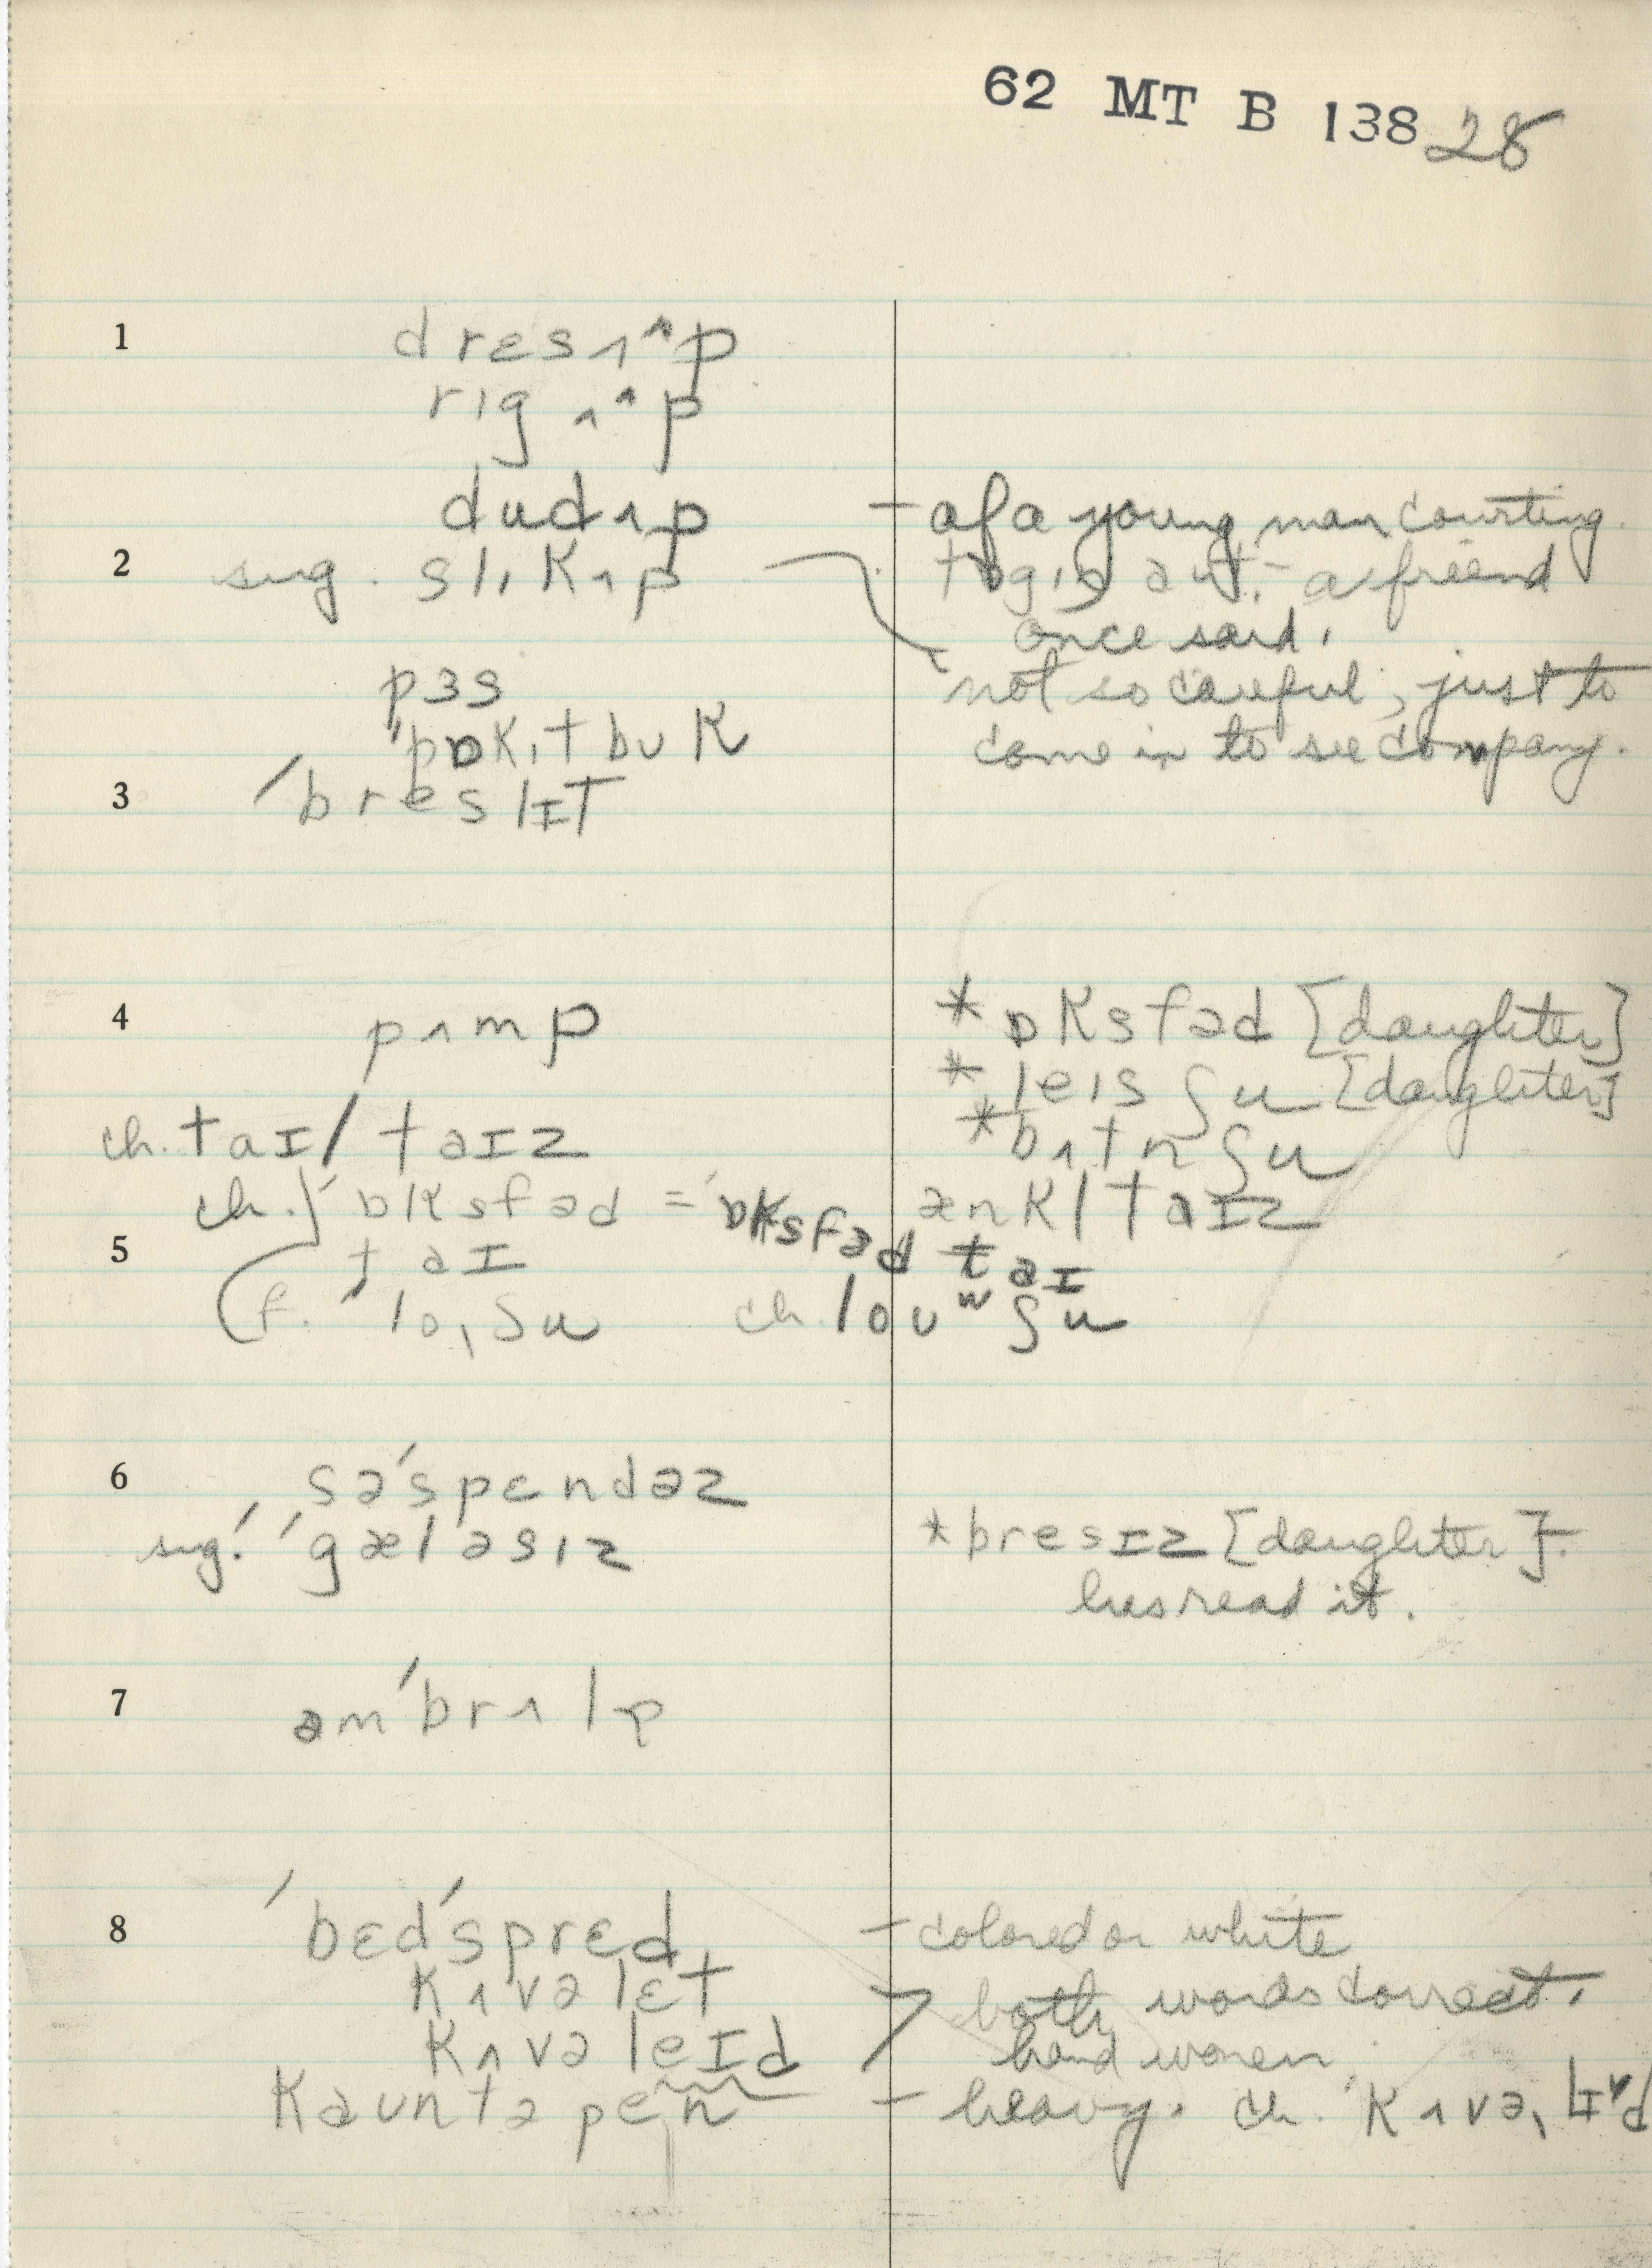 62 MT B 138 28
1 drɛs ʌ ^ʌ p
rɪg ʌ ^ʌ p
dud ʌ p – of a young man courting.
2 sug. slɪk ʌ p tɒgɪŋ aut – a friend
once said.
pɜs not so careful, just to
ˈpɒkɪt bʊk come in to see company.
3 ˈbreslɪT
4 pʌmp * ɒksfəd [daughter]
* leɪs ʃu [daughter]
ch. taɪ / taɪz * bʌtn ʃu
ch. ˈɒksfəd = ˈɒksfəd taɪ æŋkl taɪz
5 taɪ
f. ˈlo, ʃu ch. loʊ ʷ ʃu
6 səˈspendəz
sug! ˈgæləsɪz * bresɪz [daughter].
has read it.
7 əmˈbrʌlə
8 ˈbɛdˈsprɛd – colored or white
kʌvəlɛt > both words correct.
kʌvəleɪd hand woven
kauntəpen – heavy. ch. ˈkʌvə,lɪᵛd